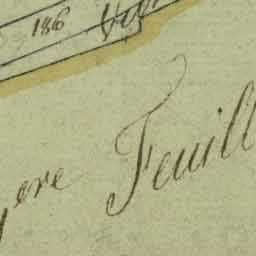 186
ere Feuill